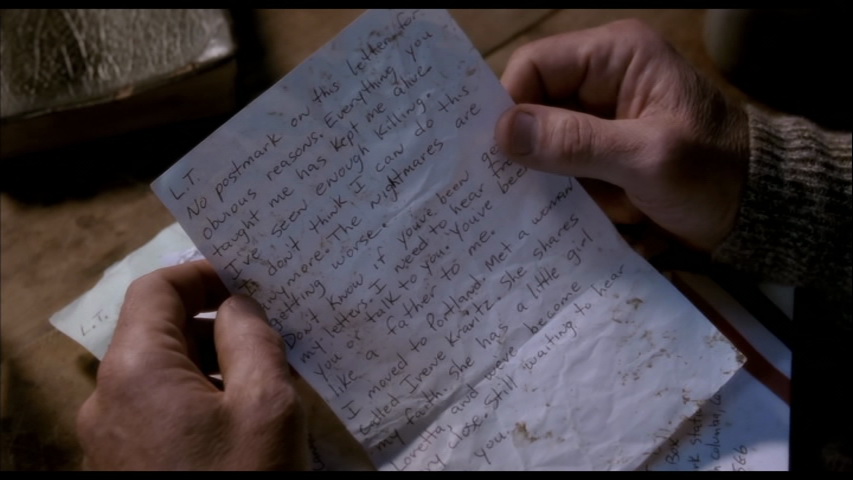 L.T.
No postmark on this letter for
obvious reasons. Everything you
taught me has kept me alive.
I've seen enough killing.
I don't think I can do this
anymore. The nightmares are
getting worse.
Don't know if you've been
my letters. I need to hear
you or talk to you. You've been
like a father to me.
I moved to Portland. Met a woman
called Irene Kravitz. She shares
my faith. She has a little girl
Loretta, and we've become
close. Still waiting to hear
you.
L.T.
Box